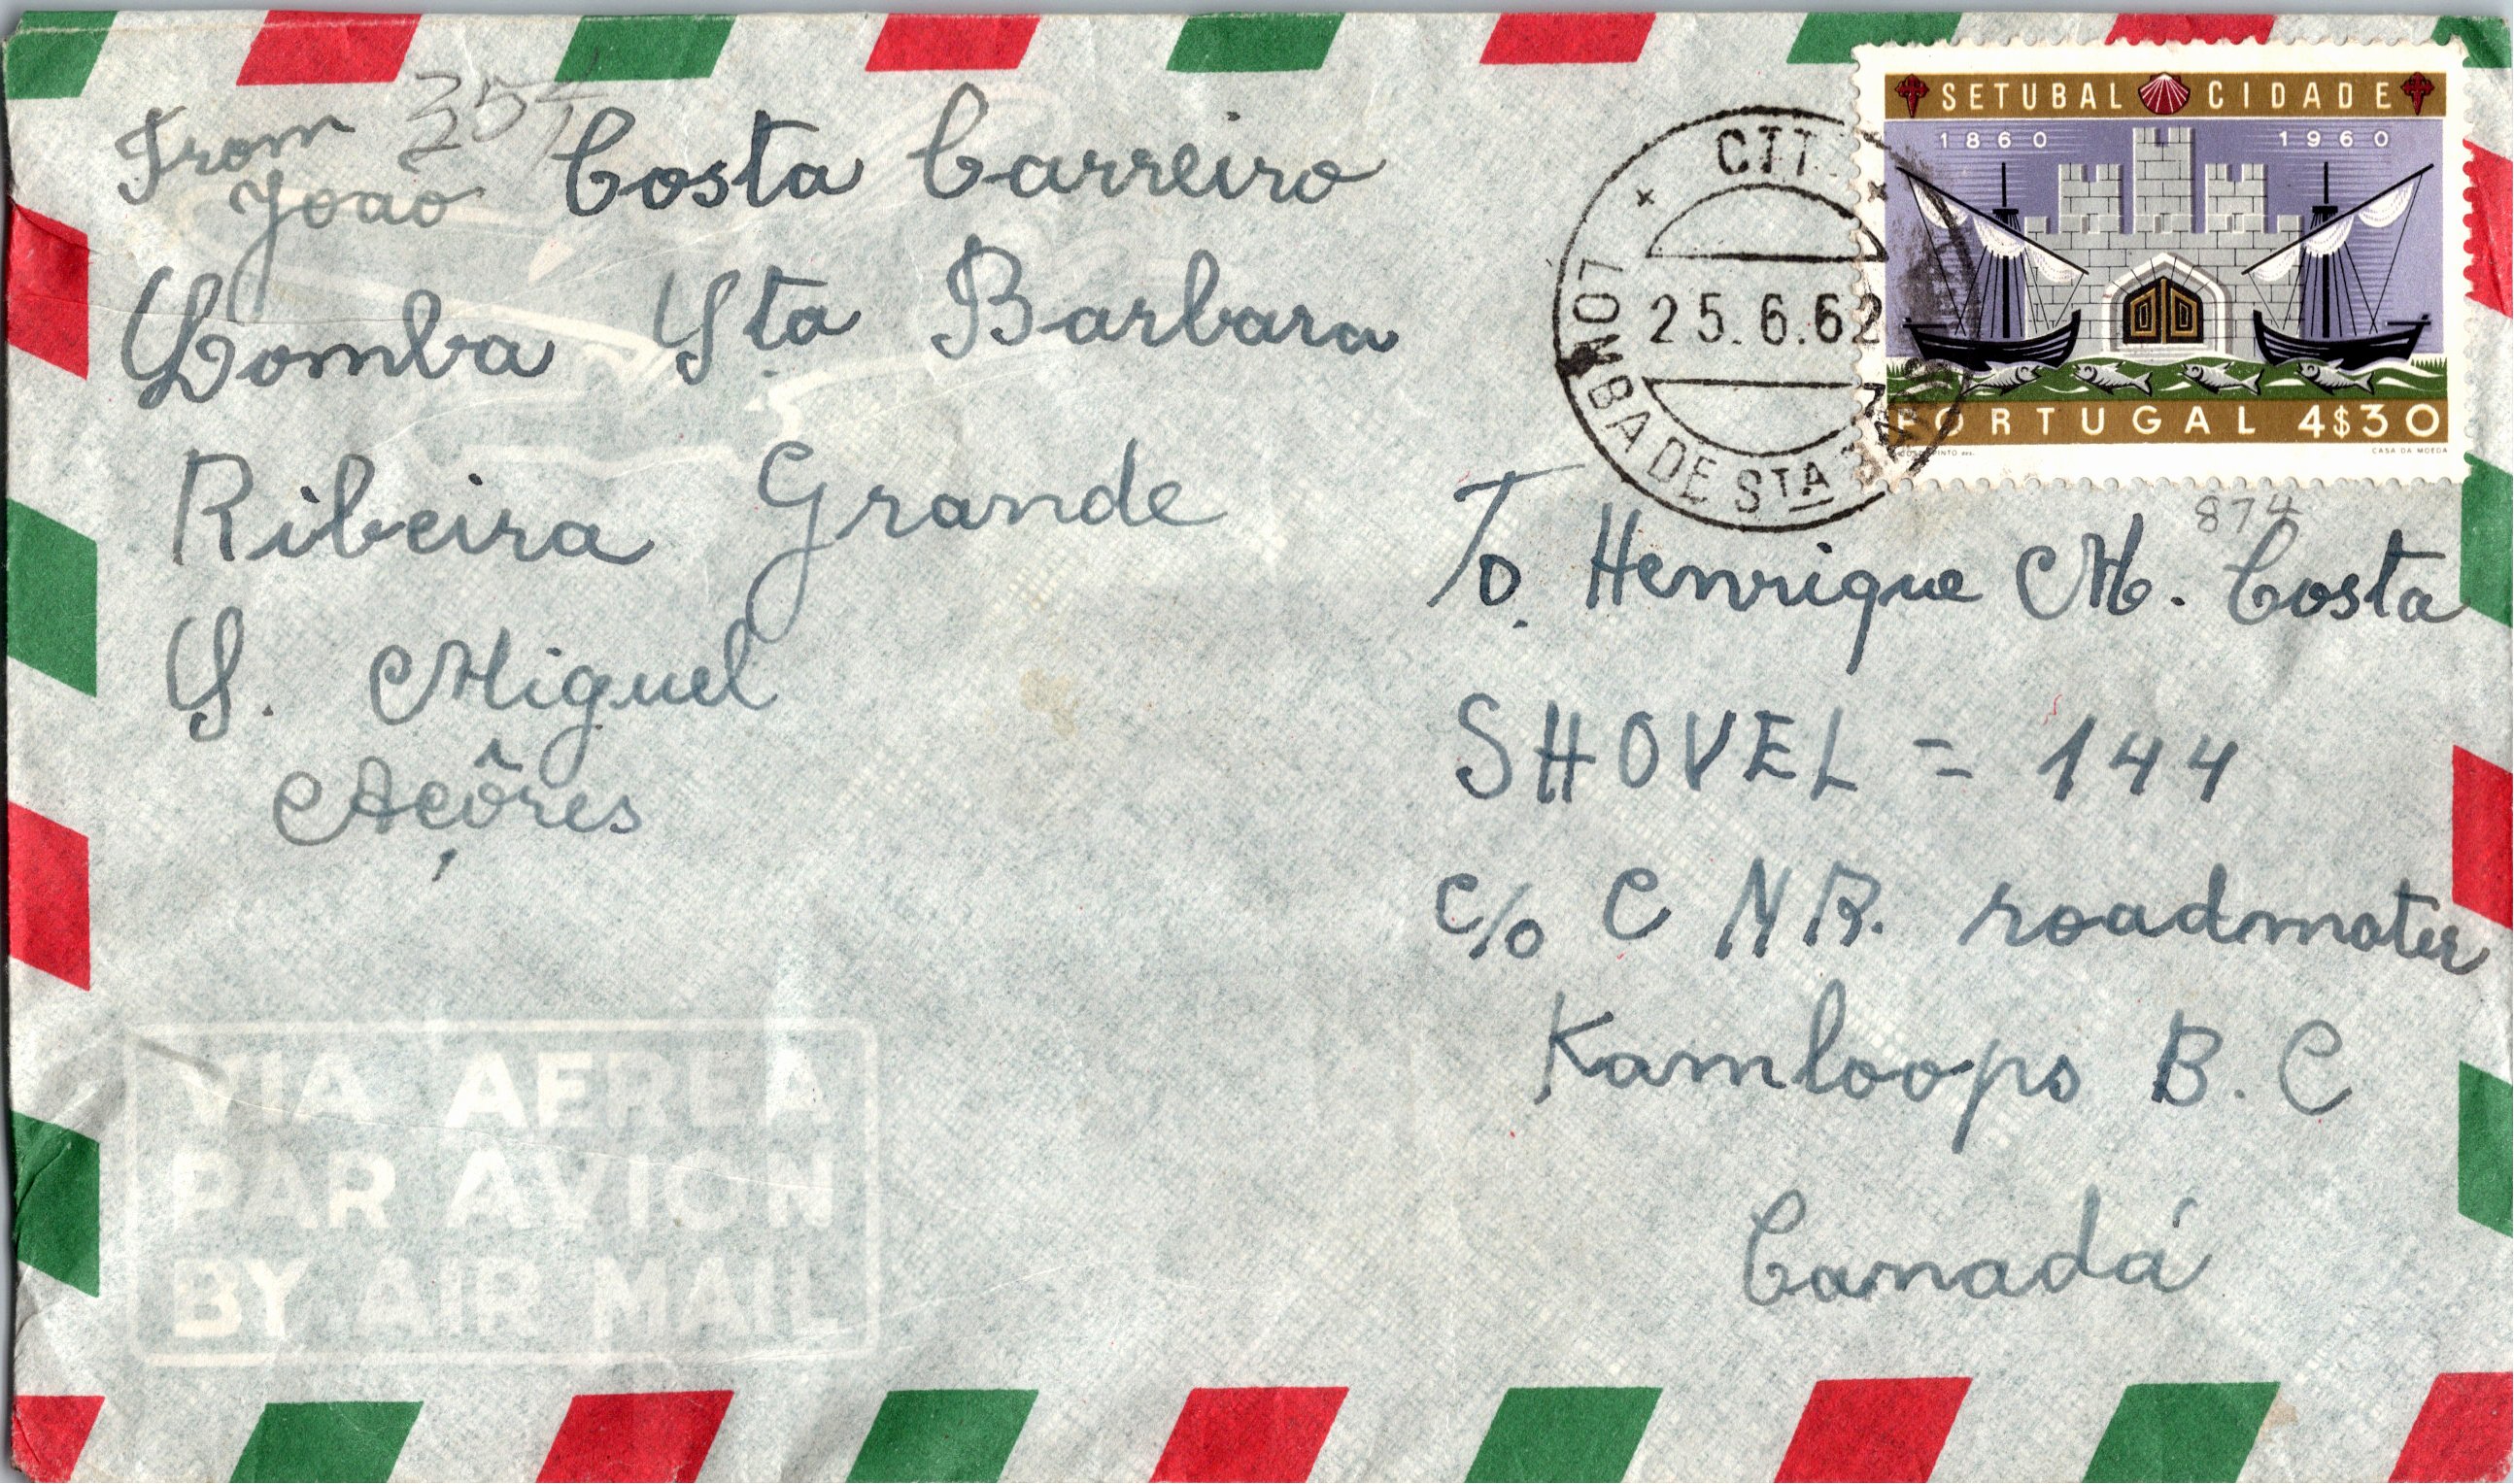 From
João Costa Carreiro
Lomba Sta Barbara
Ribeira Grande
S. Miguel
Açôres
VIA AEREA
PAR AVION
BY AIR MAIL
CTT
25.6.62
LOMBA DE STA
SETUBAL CIDADE
1860 1960
PORTUGAL 4$30
CASA DA MOEDA
874
To. Henrique M. Costa
SHOVEL = 144
c/o C N R. roadmater
Kamloops B. C
Canadá